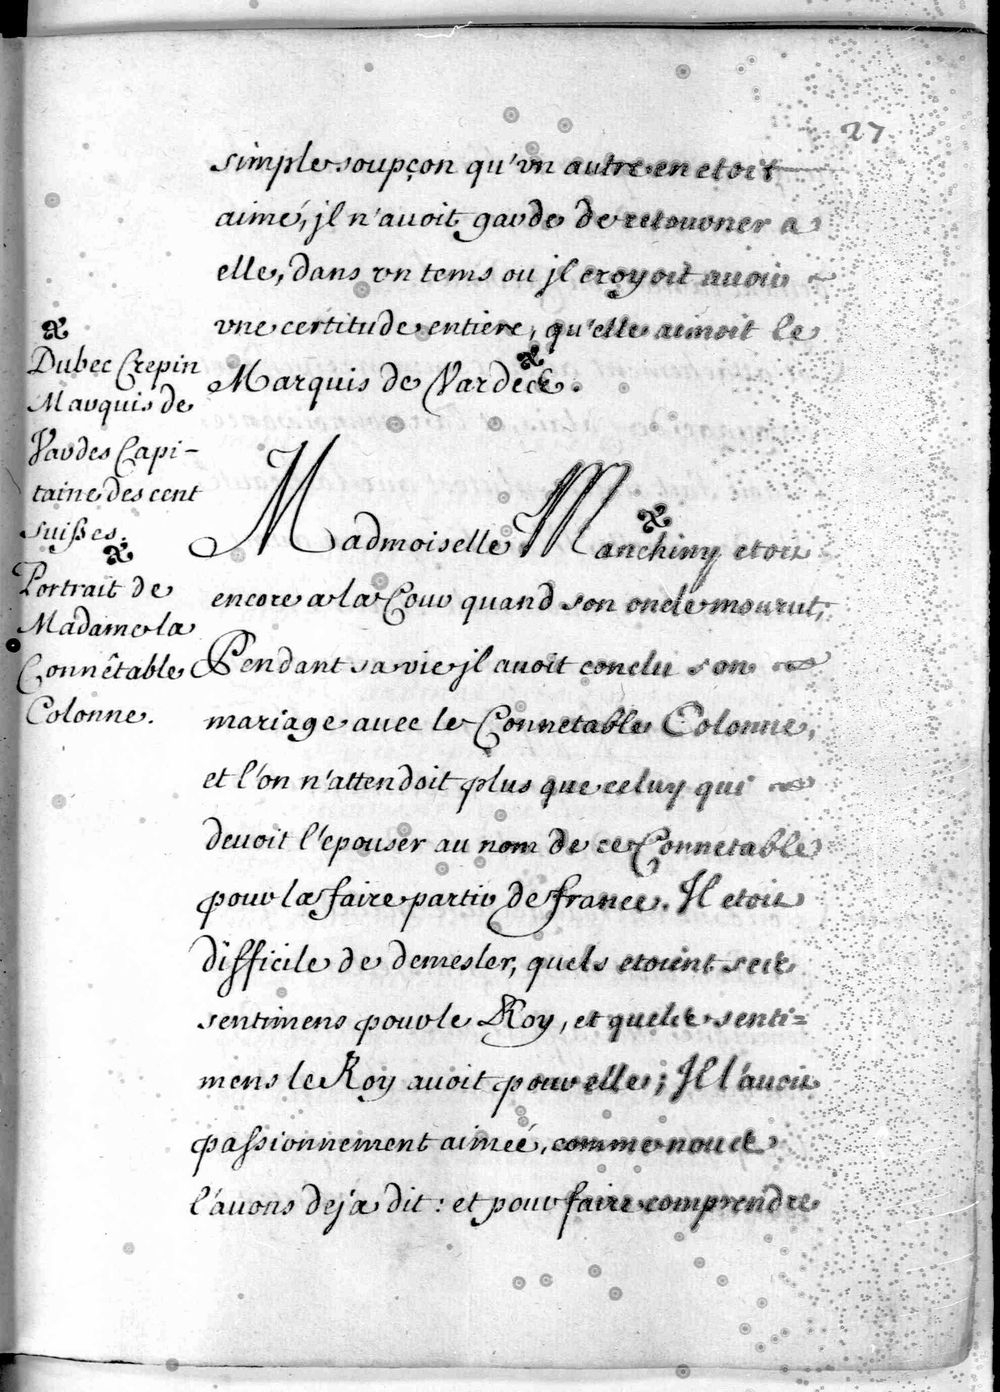 27
simple soupçon qu'vn autre en etoit
aimé, jl n'auoit garde de retourner a
elle, dans vn tems ou jl croyoit auoir
vne certitude entiere, qu'elle aimoit le
Marquis de Vardes.
Dubec Crepin
Marquis de
Vardes Capi-
taine des cent
suißes.
Portrait de
Madame la
Connêtable
Colonne.
Madmoiselle Manchiny etoit
encore a la Cour quand son oncle mourut,
Pendant sa vie jl auoit conclu son
mariage auec le Connetable Colonne,
et l'on n'attendoit plus que celuy qui
deuoit l'epouser au nom de ce Connetable
pour la faire partir de france. Il etoit
difficile de demesler, quels etoient ses
sentimens pour le Roy, et quels senti=
mens le Roy auoit pour elle; Il l'auoit
passionnement aimeé, comme nous
l'auons deja dit: et pour faire comprendre